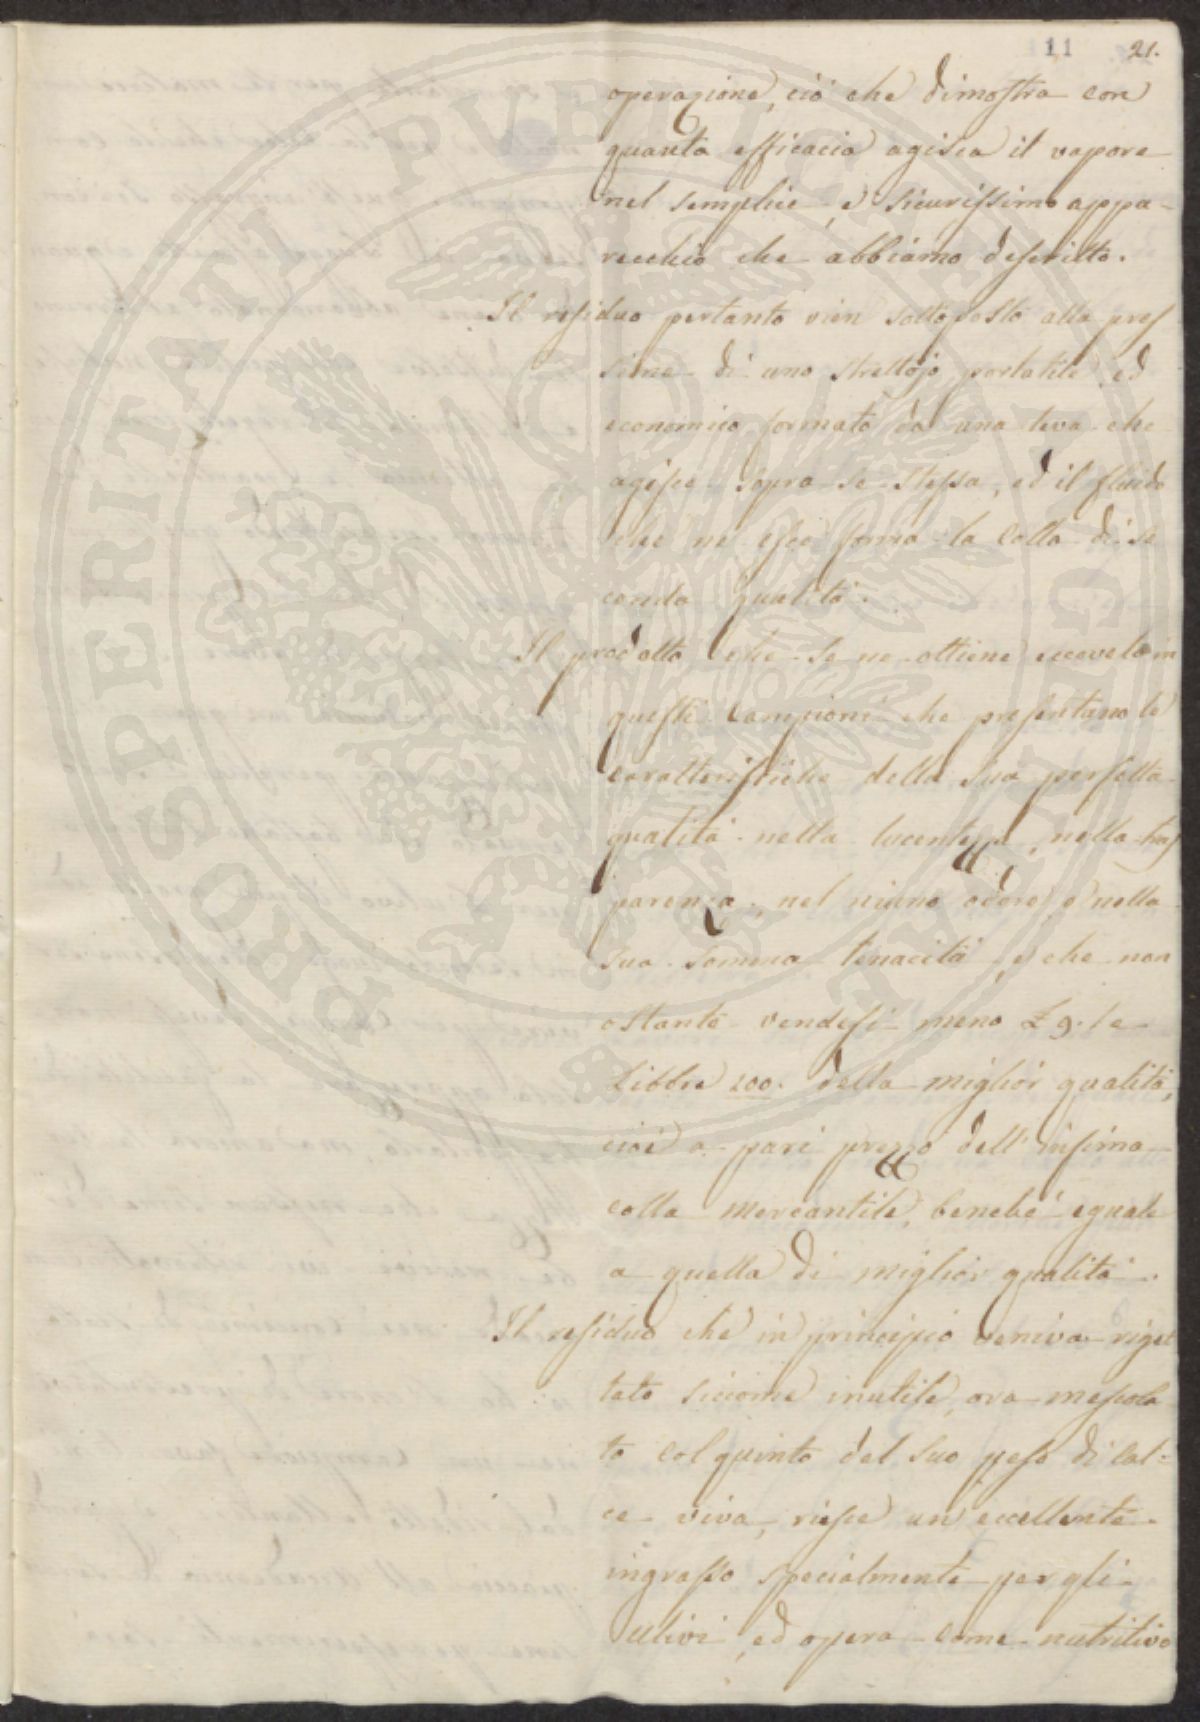 11 21.
operazione, ciò che dimostra con
quanta efficacia agisca il vapore
nel semplice, e sicurissimo appa-
recchio che abbiamo descritto.
Il residuo pertanto vien sottoposto alla pres
sione di uno strettojo portatile ed
economico formato da una leva che
agisce sopra se stessa, ed il fluido
che ne esce forma la Colla di se
conda qualità.
Il prodotto che se ne ottiene eccovelo in
questi Campioni che presentano le
caratteristiche della sua perfetta
qualità nella lucentezza, nella tras
parenza, nel niuno odore, e nella
sua somma tenacità, e che non
ostante vendesi meno £ 9. le
Libbre 100. della miglior qualità,
cioè a pari prezzo dell'infima
colla mercantile, benchè eguale
a quella di miglior qualità.
Il residuo che in principio veniva riget
tato siccome inutile, ora mescola
to col quinto del suo peso di cal=
ce viva, riesce un eccellente
ingrasso specialmente per gli
ulivi, ed opera come nutritivo
PROSPERITATI PVBLICAE AVGENDAE